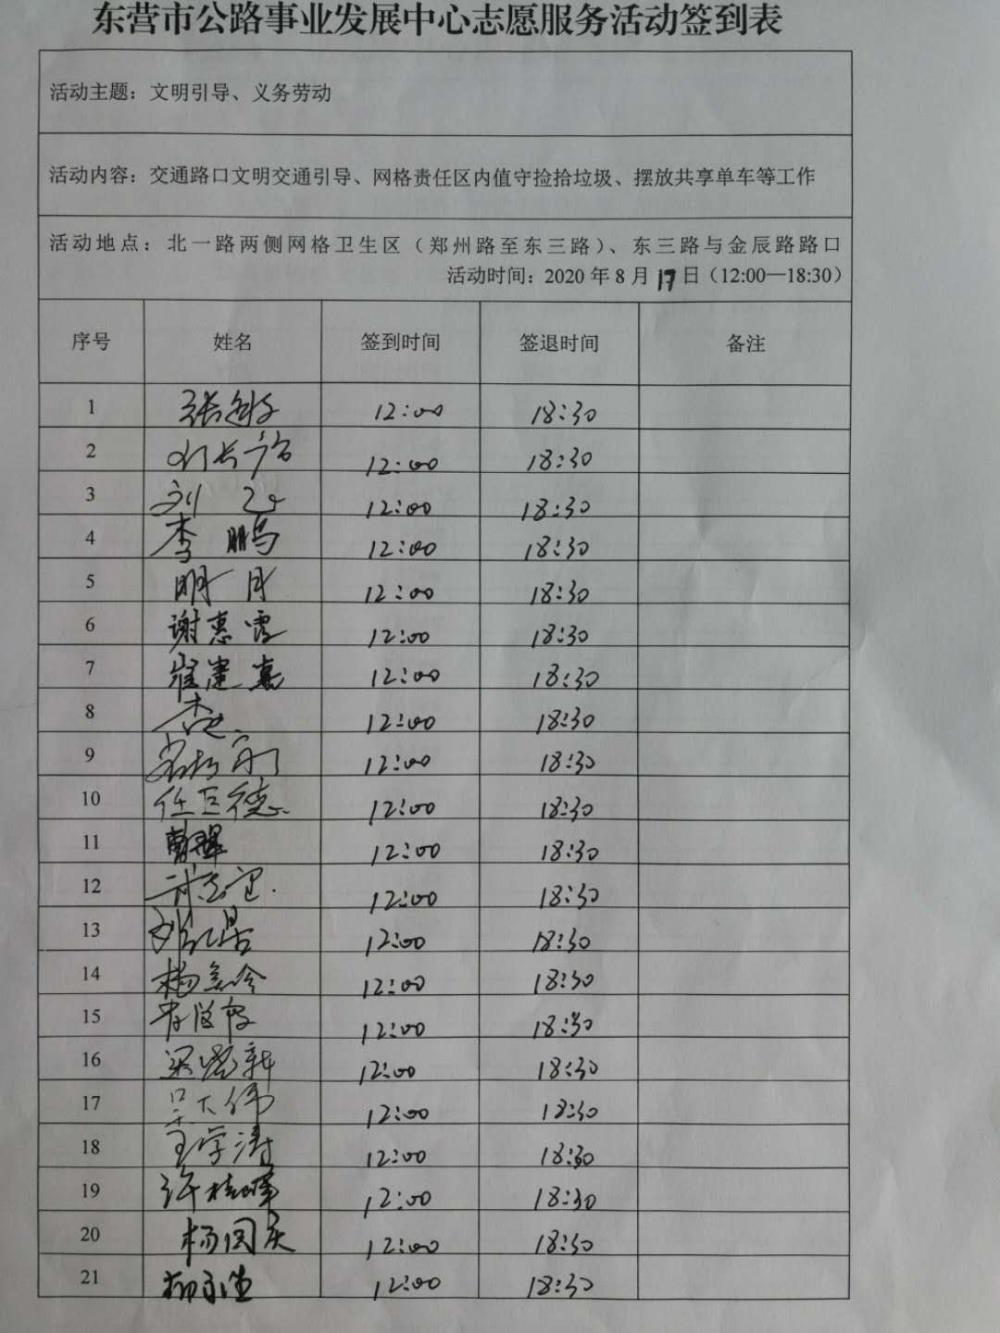 东营市公路事业发展中心志愿服务活动签到表
活动主题：文明引导、义务劳动
活动内容：交通路口文明交通引导、网格责任区内值守捡拾垃圾、摆放共享单车等工作
活动地点：北一路两侧网格卫生区（郑州路至东三路）、东三路与金辰路路口
活动时间：2020年8月17日（12:00—18:30）
序号 姓名 签到时间 签退时间 备注
1 张 12:00 18:30
2 12:00 18:30
3 刘 12:00 18:30
4 李鹏 12:00 18:30
5 明月 12:00 18:30
6 谢惠霞 12:00 18:30
7 崔建嘉 12:00 18:30
8 12:00 18:30
9 12:00 18:30
10 任巨德 12:00 18:30
11 12:00 18:30
12 12:00 18:30
13 12:00 18:30
14 杨 12:00 18:30
15 12:00 18:30
16 梁 新 12:00 18:30
17 吴大伟 12:00 18:30
18 王学涛 12:00 18:30
19 许 12:00 18:30
20 杨国庆 12:00 18:30
21 12:00 18:30